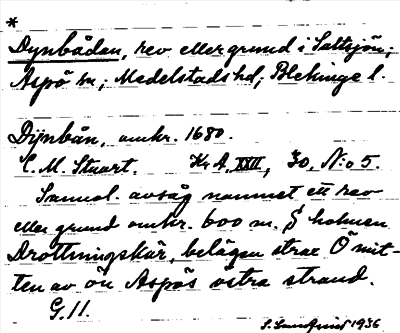 *
Dynbådan, rev eller grund i Saltsjön;
Aspö sn; Medelstads hd; Blekinge l.
Dynbån, omkr. 1680.
C. M. Stuart. Kr A, XXII, 30, N:o 5.
Sannol. avsåg namnet ett rev
eller grund omkr. 600 m. S holmen
Drottningskär, belägen strax Ö mit-
ten av ön Aspös östra strand.
G. II.
1936